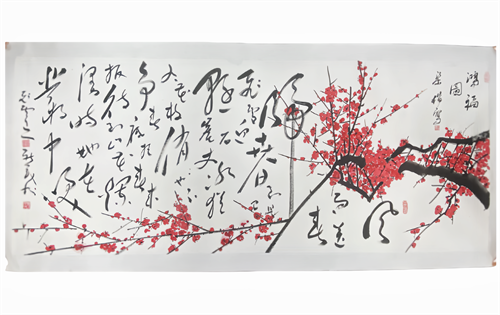 鸿福
图
风
雨送
春
归
飞雪迎春到已是
悬崖百丈冰犹
有花枝俏
争春只把春来
报待到山花烂
漫时她在
丛中笑